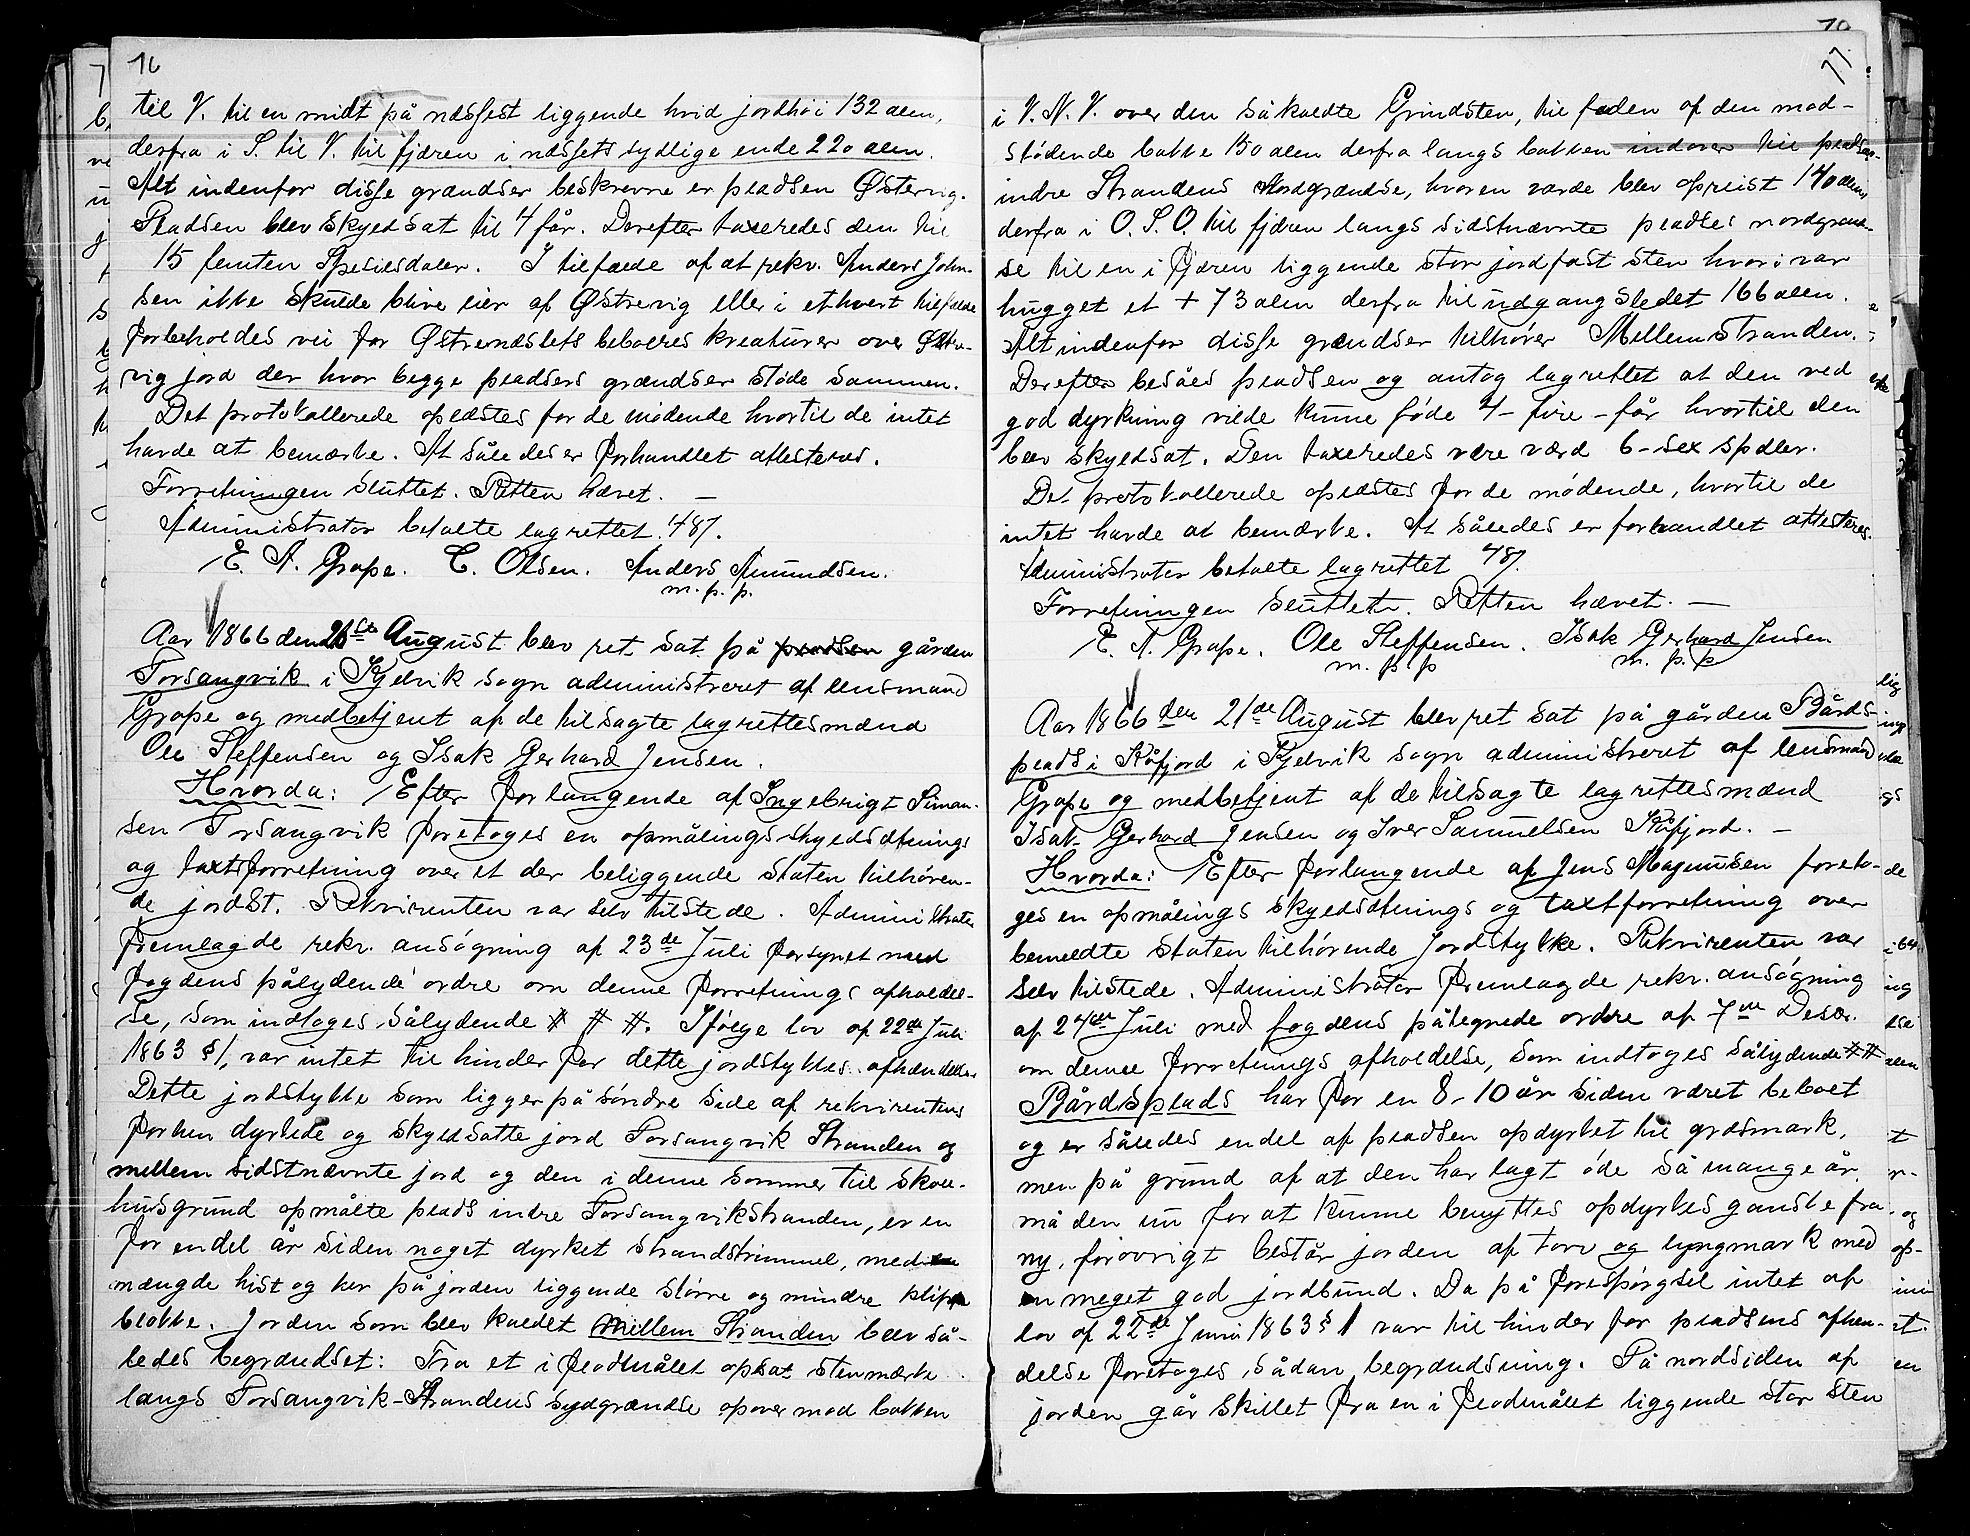 16
til V. til en midt på næsset liggende hvid jordhöi 132 alen,
derfra i S. til V. til fjæren i næssets sydlige ende 220 alen.
Alt indenfor disse grændser beskrevne er pladsen Østervig.
Pladsen blev skyldsat til 4 får. Derefter taxeredes den til
15 femten Spesiesdaler. I tilfælde af at rekv. Anders John-
sen ikke skulde blive eier af Østrevig eller i ethvert tilfælde
forbeholdes vei for Østrenæslets beboeres kreaturer over Østre-
vig jord der hvor begge pladsers grændser støde sammen.
Det protokollerede oplæstes for de mödende hvortil de intet
havde at bemærke. At således er forhandlet attesteres.
Forretningen sluttet. Retten hævet. —
Administrator betalte lagrettet 48/.
E. A. Grape. C. Olsen. Anders Amundsen.
m. p. p.
Aar 1866 den 21de August blev ret sat på pladsen gården
Torsangvik i Kjelvik sogn administreret af lensmand
Grape og medbetjent af de tilsagte lagrettesmænd
Ole Steffensen og Isak Gerhard Jensen.
Hvorda: Efter forlangende af Ingebrigt Siman-
sen Torsangvik foretoges en opmålings skyldsætnings
og taxtforretning over et der beliggende Staten tilhören-
de jordst. Rekvirenten var selv tilstede. Administrator
fremlagde rekv. ansögning af 23de Juli forsynet med
fogdens pålydende ordre om denne forretnings afholdel-
se, som indtoges sålydende # # #. Ifölge lov af 22de Juli
1863 § 1, var intet til hinder for dette jordstykkes afhændelse.
Dette jordstykke som ligger på söndre side af rekvirentens
forhen dyrkede og skyldsatte jord Torsangvik Stranden og
mellem sidstnævnte jord og den i denne sommer til skole-
husgrund opmålte plads indre Torsangvikstranden, er en
for endel år siden noget dyrket strandstrimmel, med en
mængde hist og her på jorden liggende större og mindre klippe
blokke. Jorden som blev kaldet Mellem Stranden blev så-
ledes begrændset: Fra et i flodmålet opsat stenmærke
langs Torsangvik-Strandens sydgrændse opover mod bakken
11.
i V. N. V. over den såkaldte Grindsten, til foden af den mod-
stödende bakke 150 alen derfra langs bakken indover til pladsen
indre Strandens Nordgrændse, hvor en varde blev opreist 140 alen,
derfra i O. S. O. til fjæren langs sidstnævnte pladses nordgrænd-
se til en i fjæren liggende stor jordfast sten hvori var
hugget et + 73 alen derfra til udgangsledet 166 alen.
Alt indenfor disse grændser tilhører Mellemstranden.
Derefter besåes pladsen og antog lagrettet at den ved
god dyrkning vilde kunne föde 4 - fire - får hvortil den
blev skyldsat. Den taxeredes være værd 6 - sex spdlr.
Det protokollerede oplæstes for de mödende, hvortil de
intet havde at bemærke. At således er forhandlet attesteres.
Administrator betalte lagrettet 48/.
Forretningen sluttet. Retten hævet. —
E. A. Grape. Ole Steffensen. Isak Gerhard Jensen
m. p. p m. p. p
Aar 1866 den 21de August blev ret sat på gården Bårds-
plads i Kåfjord i Kjelvik sogn administreret af lensmand
Grape og medbetjent af de tilsagte lagrettesmænd
Isak Gerhard Jensen og Iver Samuelsen Kåfjord. —
Hvorda: Efter forlangende af Jens Magnussen foreto-
ges en opmålings skyldsætnings og taxtforretning over
bemeldte staten tilhörende jordstykke. Rekvirenten var
selv tilstede. Administrator fremlagde rekv. ansögning
af 24de Juli med fogdens påtegnede ordre af 7de Desbr.
om denne forretnings afholdelse, som indtoges sålydende # #
Bårdsplads har for en 8-10 år siden været beboet
og er således endel af pladsen opdyrket til græsmark,
men på grund af at den har lagt öde så mange år,
må den nu for at kunne benyttes opdyrkes ganske fra
ny, forövrigt består jorden af torv og lyngmark med
en meget god jordbund. Da på forespörgsel intet af
lov af 22de Juni 1863 § 1 var til hinder for pladsens afhen-
delse foretoges sådan begrændsning. På nordsiden af
jorden går skillet fra en i flodmålet liggende stor sten